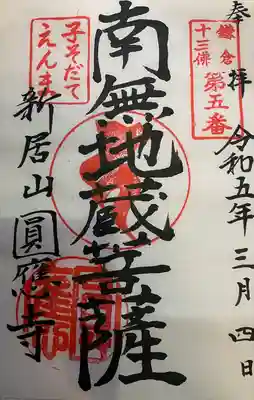 奉拝
令和五年三月四日
鎌倉
十三佛
第五番
南無地蔵菩薩
子そだて
えんま
新居山
圓應寺